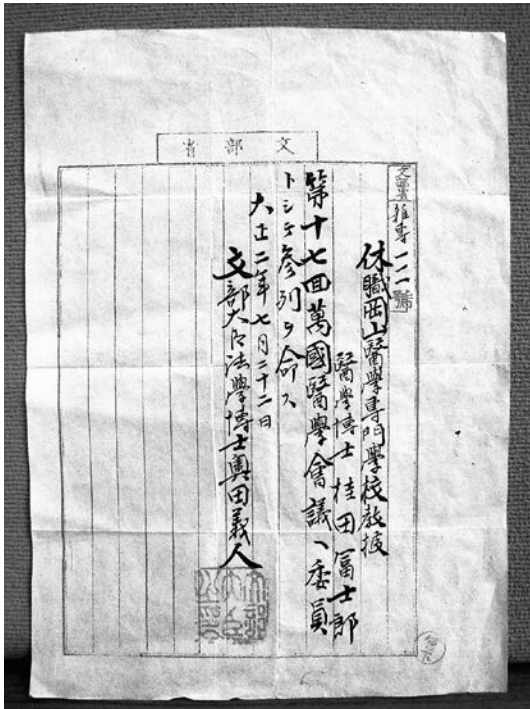 文部省
文部省雑専一一一號
休職岡山醫學專門學校教授
醫學博士桂田富士郎
第十七回萬國醫學會議ヘ委員
トシテ參列ヲ命ス
大正二年七月二十二日
文部大臣法學博士奧田義人